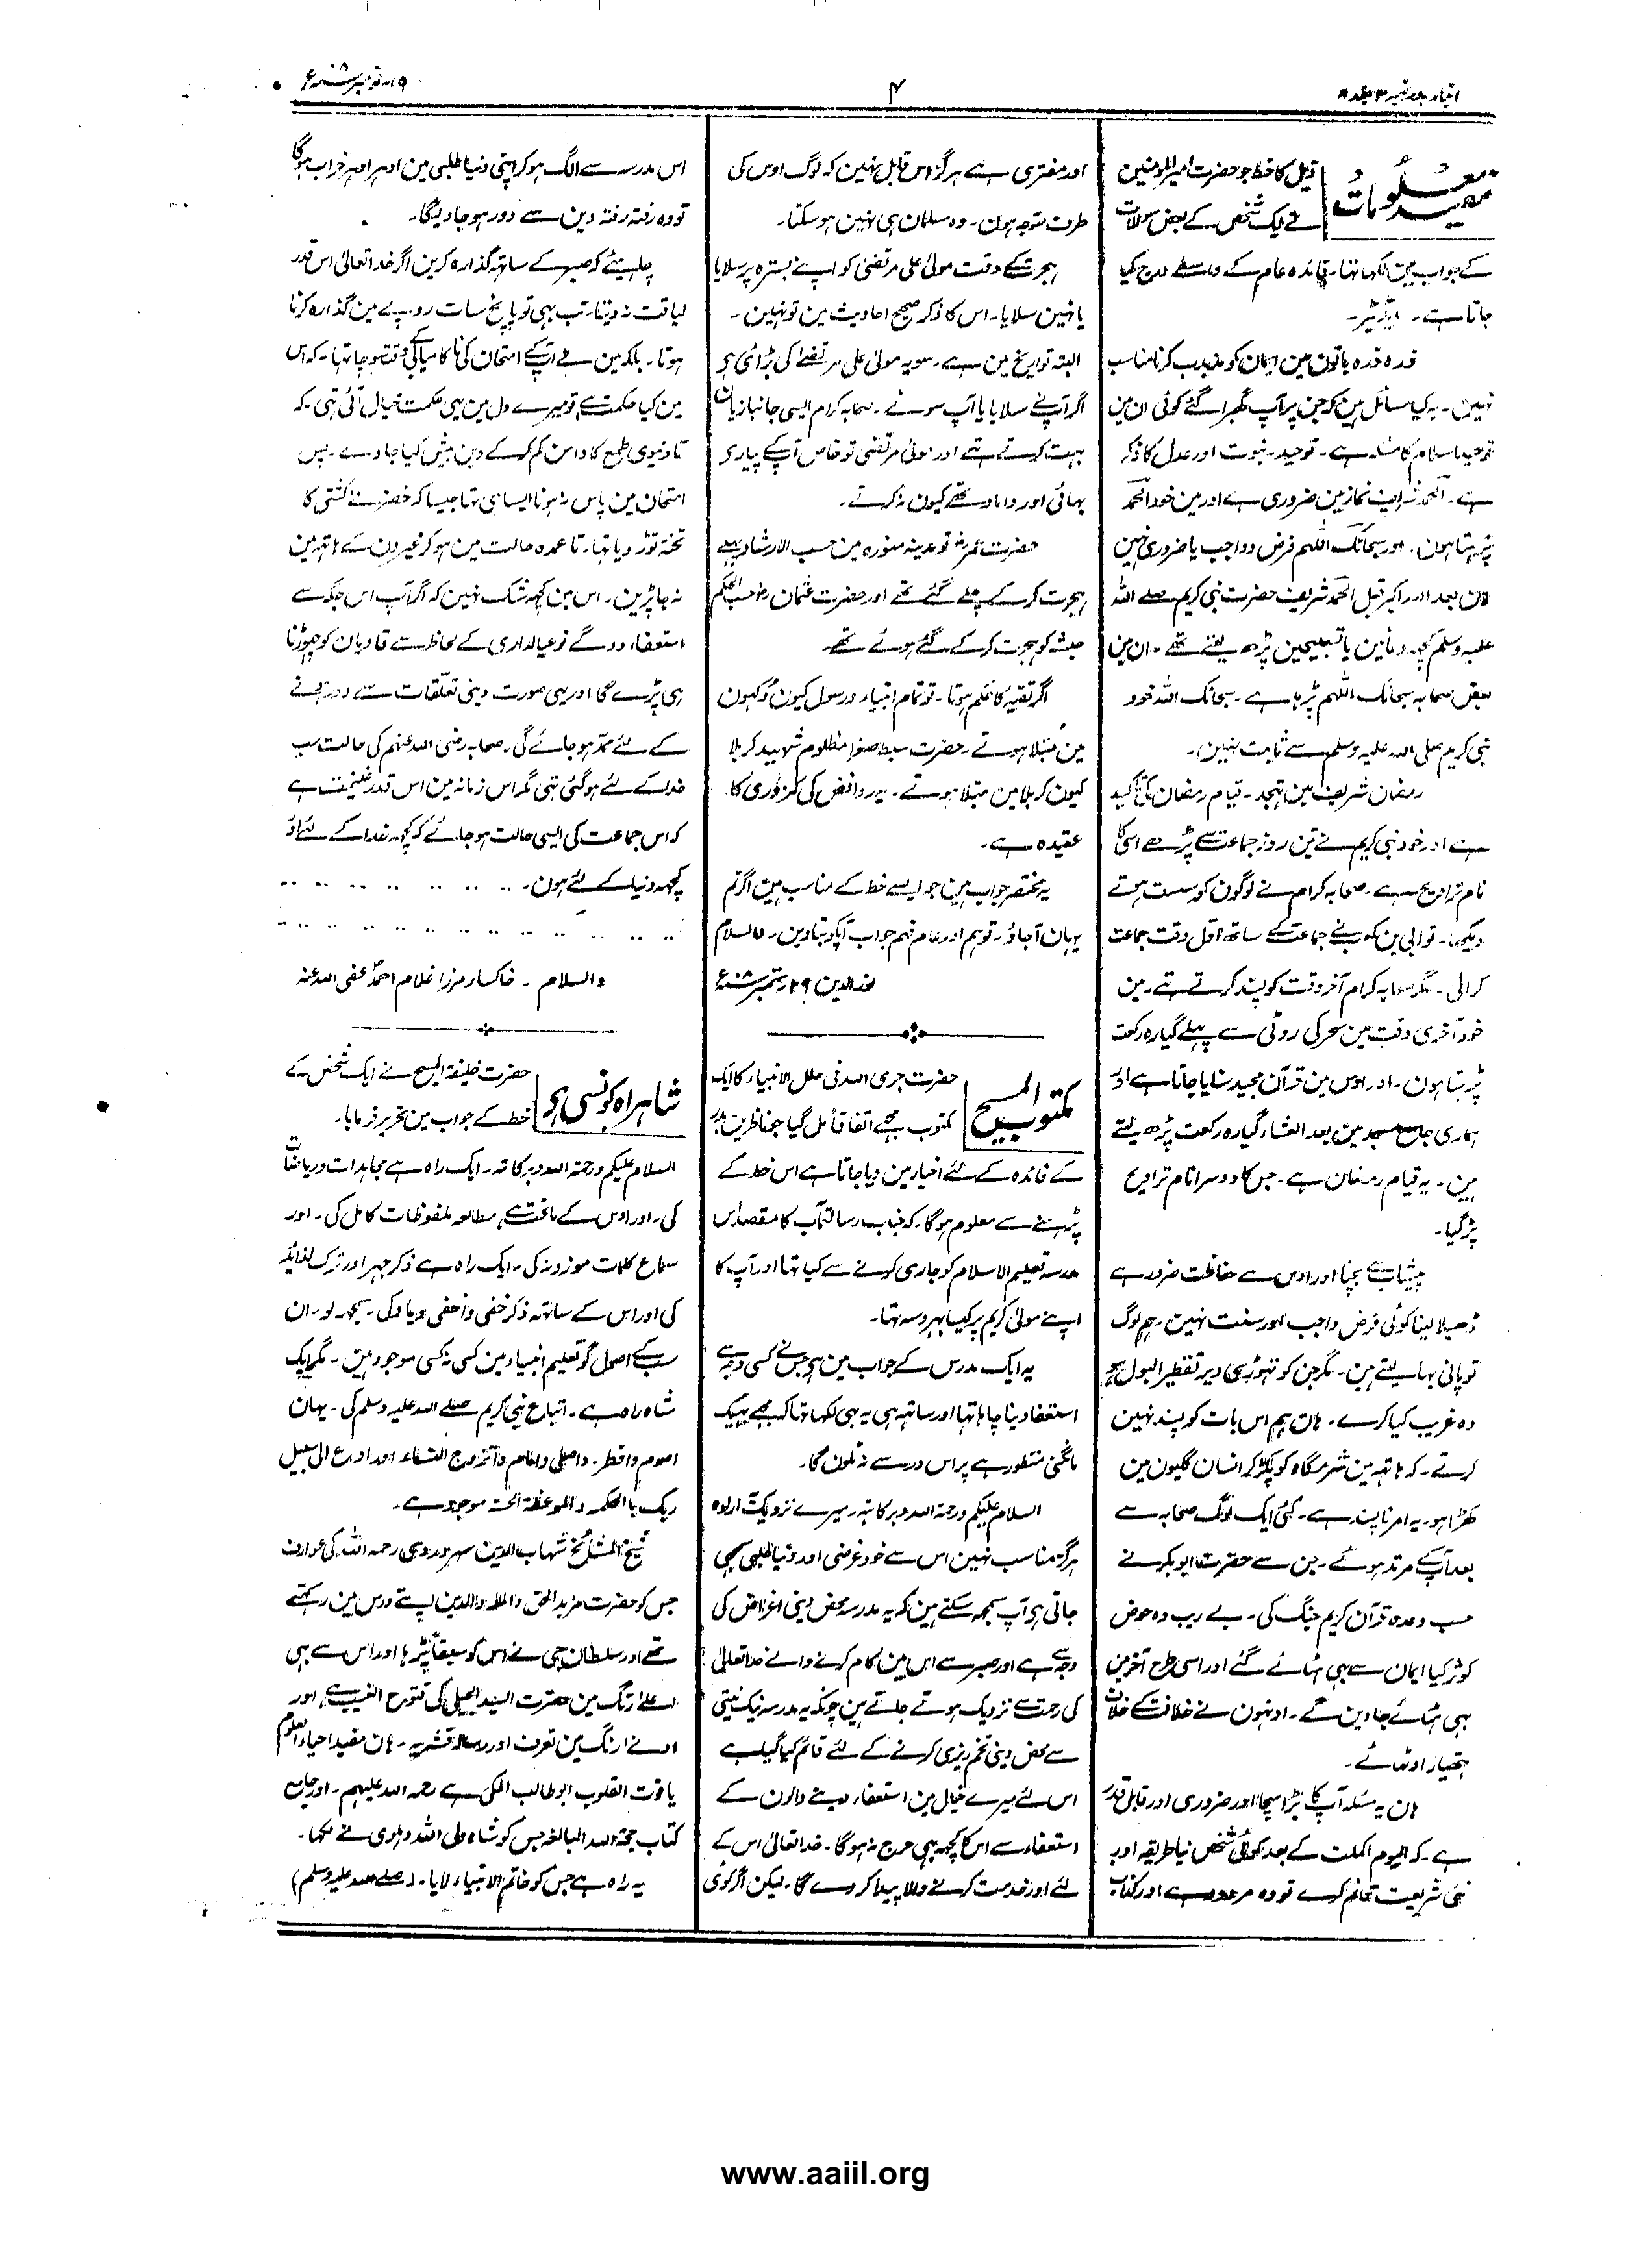 اخبار بدر نمبر ۳ جلد ۸
۴
۱۹ نومبر ۱۹۰۸ء
مفید معلومات
ذیل کا خط جو حضرت امیر المومنین
نے ایک شخص کے بعض سوالات
کے جواب مین لکھا تھا۔ فائدہ عام کے واسطے درج کیا
جاتا ہے۔ ایڈیٹر۔
ذرہ ذرہ باتون مین ایمان کو مذبذب کرنا مناسب
نہین۔ یہ کیا مسائل ہین کہ جن پر آپ گھبرا گئے کوئی ان مین
توحید اسلام کا مسئلہ ہے۔ توحید۔ نبوت اور عدل کا ذکر
ہے۔ الحمد شریف نماز مین ضروری ہے اور مین خود الحمد
پڑہتا ہون۔ اور سبحانک اللہم فرض و واجب یا ضروری نہین
ہان بعد اللہ اکبر قبل الحمد شریف حضرت نبی کریم صلے اللہ
علیہ وسلم کچہہ دعائین یا تسبیحین پڑھ لیتے تھے۔ ان مین
بعض صحابہ سبحانک اللہم پڑہا ہے۔ سبحانک اللہ خود
نبی کریم صلی اللہ علیہ وسلم سے ثابت نہین۔
رمضان شریف مین تہجد۔ قیام رمضان کی تاکید
ہے اور خود نبی کریم نے تین روز جماعت سے پڑھے اسی کا
نام تراویح ہے۔ صحابہ کرام نے لوگون کو سست ہوتے
دیکھا۔ تو ابی بن کعب نے جماعت کے ساتھ اول وقت جماعت
کرائی۔ مگر صحابہ کرام آخر وقت کو پسند کرتے تہے۔ مین
خود آخری وقت مین سحر کی روٹی سے پہلے گیارہ رکعت
پڑہتا ہون۔ اور اوس مین قرآن مجید سنایا جاتا ہے اور
ہماری جامع مسجد مین بعد العشاء گیارہ رکعت پڑھ لیتے
ہین۔ یہ قیام رمضان ہے۔ جس کا دوسرا نام تراویح
پڑ گیا۔
پیشاب سے بچنا اور اوس سے حفاظت ضرور ہے
ڈھیلا لینا کوئی فرض واجب اور سنت نہین۔ ہم لوگ
تو پانی بہا لیتے ہین۔ مگر جن کو تہوڑی دیر تقطیر البول ہو
وہ غریب کیا کرے۔ ہان ہم اس بات کو پسند نہین
کرتے۔ کہ ہاتہہ مین شرمگاہ کو پکڑ کر انسان گلیون مین
کھڑا ہو۔ یہ امر ناپسند ہے۔ کئی ایک لوگ صحابہ سے
بعد آپ کے مرتد ہو گئے۔ جن سے حضرت ابوبکر نے
حسب وعدہ قرآن کریم جنگ کی۔ بے ریب وہ حوض
کوثر کیا ایمان سے بہی ہٹائے گئے اور اسی طرح آخر مین
بہی ہٹائے جاوین گے۔ اونہون نے خلافت کے خلاف
ہتھیار اوٹھائے۔
ہان یہ مسئلہ آپ کا بڑا سچا اور ضروری اور قابل قدر
ہے۔ کہ الیوم اکملت کے بعد کوئی شخص نیا طریقہ اور
نئی شریعت قائم کرے تو وہ مردود ہے اور کذاب
اور مفتری ہے ہرگز اس قابل نہین کہ لوگ اوس کی
طرف متوجہ ہون۔ وہ مسلمان ہی نہین ہو سکتا۔
ہجرت کے وقت مولیٰ علی مرتضیٰ کو اپنے بسترہ پر سلایا
یا نہین سلایا۔ اس کا ذکر صحیح احادیث مین تو نہین۔
البتہ تواریخ مین ہے۔ سو یہ مولیٰ علی مرتضیٰ کی بڑائی ہے
اگر آپ نے سلایا یا آپ سوئے۔ صحابہ کرام ایسی جانبازیان
بہت کرتے تہے اور مولیٰ مرتضیٰ تو خاص آپ کے پیارے
بہائی اور داماد تھے کیون نہ کرتے۔
حضرت عمرؓ تو مدینہ منورہ مین حسب الارشاد پہلے
ہجرت کر کے چلے گئے تھے اور حضرت عثمان رضؓ حسب الحکم
حبشہ کو ہجرت کر کے گئے ہوئے تھے۔
اگر تقیہ کا حکم ہوتا۔ تو تمام انبیاء و رسول کیون دکہون
مین مبتلا ہوتے۔ حضرت سبط صغرا مظلوم شہید کربلا
کیون کربلا مین مبتلا ہوتے۔ یہ روافض کی کمزوری کا
عقیدہ ہے۔
یہ مختصر جواب ہین جو ایسے خط کے مناسب ہین اگر تم
یہان آجاؤ۔ تو ہم اور عام فہم جواب آپکو بتا دین۔ والسلام
نور الدین ۲۹ ستمبر ۱۹۰۸ء
مکتوب المسیح
حضرت جری اللہ فی حلل الانبیاء کا ایک
مکتوب مجھے اتفاقاً مل گیا جو ناظرین بدر
کے فائدہ کے لئے اخبار مین دیا جاتا ہے اس خط کے
پڑہنے سے معلوم ہوگا۔ کہ جناب رسالتمآب کا مقصد اس
مدرسہ تعلیم الاسلام کو جاری کرنے سے کیا تہا اور آپ کا
اپنے مولیٰ کریم پر کیسا بہروسہ تہا۔
یہ ایک مدرس کے جواب مین ہے جس نے کسی وجہ سے
استعفا دینا چاہا تہا اور ساتہہ ہی یہ بہی لکھا تہا کہ مجھے بہیک
مانگنی منظور ہے پر اس در سے نہ ٹلون گا۔
السلام علیکم ورحمۃ اللہ وبرکاتہ۔ میرے نزدیک یہ ارادہ
ہرگز مناسب نہین اس سے خود غرضی اور دنیا طلبی سمجھی
جاتی ہے آپ سمجہہ سکتے ہین کہ یہ مدرسہ محض دینی اغراض کی
وجہ سے ہے اور صبر سے اس مین کام کرنے والے خدا تعالیٰ
کی رحمت سے نزدیک ہوتے جاتے ہین چونکہ یہ مدرسہ نیک نیتی
سے محض دینی تخم ریزی کرنے کے لئے قائم کیا گیا ہے
اس لئے میرے خیال مین استعفاء دینے والون کے
استعفاء سے اس کا کچہہ بہی حرج نہ ہوگا۔ خدا تعالیٰ اس کے
لئے اور خدمت کرنے والا پیدا کر دے گا۔ لیکن اگر کوئی
اس مدرسہ سے الگ ہو کر اپنی دنیا طلبی مین ادہر اودہر خراب ہوگا
تو وہ رفتہ رفتہ دین سے دور ہو جاویگا۔
چاہئیے کہ صبر کے ساتہہ گذارہ کرین اگر خدا تعالیٰ اس قدر
لیاقت نہ دیتا۔ تب بہی تو پانچ سات روپے مین گذارہ کرنا
ہوتا۔ بلکہ مین نے آپ کے امتحان کی ناکامیابی کے وقت سوچا تہا۔ کہ اس
مین کیا حکمت ہے تو میرے دل مین یہی حکمت خیال آئی تہی۔ کہ
تا دنیوی طمع کا دامن کم کر کے دین پیش کیا جاوے۔ پس
امتحان مین پاس نہ ہونا ایسا ہی تہا جیسا کہ خضر نے کشتی کا
تختہ توڑ دیا تہا۔ تا عمدہ حالت مین ہو کر غیرون کے ہاتہہ مین
نہ جا پڑین۔ اس مین کچہہ شک نہین کہ اگر آپ اس جگہ سے
استعفاء دو گے تو عیالداری کے لحاظ سے قادیان کو چہوڑنا
ہی پڑے گا اور یہی صورت دینی تعلقات سے دور ہونے
کے لئے ممد ہو جائے گی۔ صحابہ رضی اللہ عنہم کی حالت سب
خدا کے لئے ہو گئی تہی مگر اس زمانہ مین اس قدر غنیمت ہے
کہ اس جماعت کی ایسی حالت ہو جائے کہ کچہہ خدا کے لئے اور
کچہہ دنیا کے لئے ہون۔
والسلام۔ خاکسار مرزا غلام احمدؑ عفی اللہ عنہ
شاہراہ کونسی ہے
حضرت خلیفۃ المسیح نے ایک شخص کے
خط کے جواب مین تحریر فرمایا۔
السلام علیکم ورحمۃ اللہ وبرکاتہ۔ ایک راہ ہے مجاہدات و ریاضات
کی۔ اور اوس کے ماتحت ہے مطالعہ ملفوظات کامل کی۔ اور
سماع کلمات موزونہ کی۔ ایک راہ ہے ذکر جہر اور ترک لذائذ
کی اور اس کے ساتہہ ذکر خفی و اخفی و یاد کی۔ سمجہہ لو۔ ان
سب کے اصول گو تعلیم انبیاء مین کسی نہ کسی موجود ہین۔ مگر ایک
شاہ راہ ہے۔ اتباع نبی کریم صلے اللہ علیہ وسلم کی۔ یہان
اصوم وافطر۔ واصلی وانام واتزوج النساء اور ادع الی سبیل
ربک بالحکمۃ والموعظۃ الحسنۃ موجود ہے۔
شیخ المشائخ شہاب الدین سہروردی رحمہ اللہ کی عوارف
جس کو حضرت فرید الحق والملۃ والدین اپنے درس مین رکہتے
تھے اور سلطان جی نے اس کو سبقاً پڑہا اور اس سے بہی
اعلےٰ رنگ مین حضرت السید الجیلی کی فتوح الغیب ہے۔ اور
ادنےٰ رنگ مین تعرف اور رسالہ قشیریہ۔ ہان مفید احیاء العلوم
یا قوت القلوب ابو طالب المکی ہے رحمہ اللہ علیہم۔ اور جامع
کتاب حجۃ اللہ البالغہ جس کو شاہ ولی اللہ دہلوی نے لکہا۔
یہ راہ ہے جس کو خاتم الانبیاء لایا۔ (صلے اللہ علیہ وسلم)
www.aaiil.org